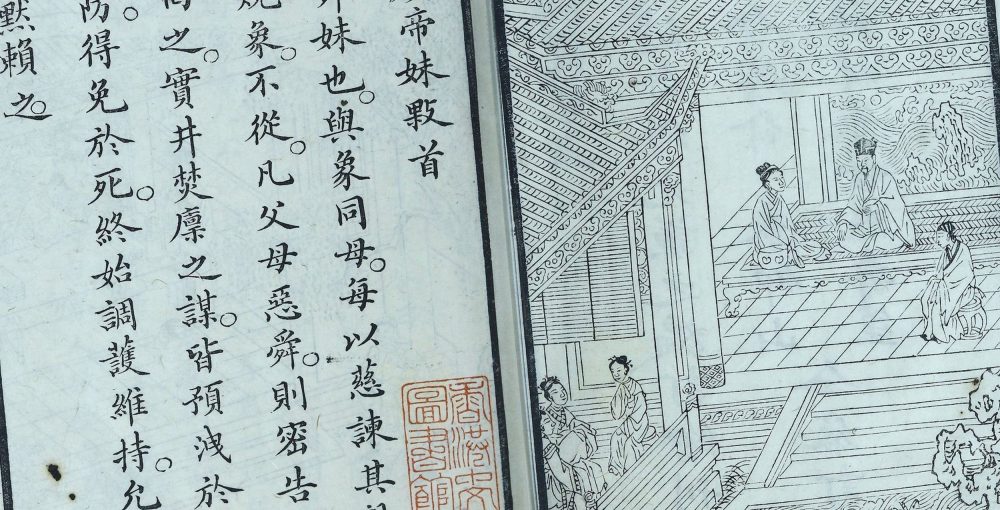 帝妹敤首
妹也。與象同母。每以慈諫其
象。不從。凡父母惡舜。則密告
之。實井焚廩之謀。皆預洩於
防得免於死。終始調護維持。允
默賴之。
香港
圖書館